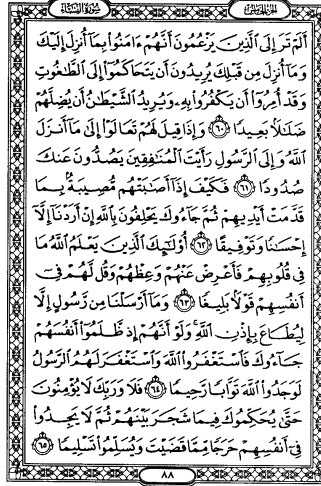 سُورَةُ النِّسَاءِ
الجزء الخامس
أَلَمْ تَرَ إِلَى ٱلَّذِينَ يَزْعُمُونَ أَنَّهُمْ ءَامَنُوا۟ بِمَآ أُنزِلَ إِلَيْكَ
وَمَآ أُنزِلَ مِن قَبْلِكَ يُرِيدُونَ أَن يَتَحَاكَمُوٓا۟ إِلَى ٱلطَّـٰغُوتِ
وَقَدْ أُمِرُوٓا۟ أَن يَكْفُرُوا۟ بِهِۦ وَيُرِيدُ ٱلشَّيْطَـٰنُ أَن يُضِلَّهُمْ
ضَلَـٰلًۢا بَعِيدًا ٦٠ وَإِذَا قِيلَ لَهُمْ تَعَالَوْا۟ إِلَىٰ مَآ أَنزَلَ
ٱللَّهُ وَإِلَى ٱلرَّسُولِ رَأَيْتَ ٱلْمُنَـٰفِقِينَ يَصُدُّونَ عَنكَ
صُدُودًا ٦١ فَكَيْفَ إِذَآ أَصَـٰبَتْهُم مُّصِيبَةٌۢ بِمَا
قَدَّمَتْ أَيْدِيهِمْ ثُمَّ جَآءُوكَ يَحْلِفُونَ بِٱللَّهِ إِنْ أَرَدْنَآ إِلَّآ
إِحْسَـٰنًا وَتَوْفِيقًا ٦٢ أُو۟لَـٰٓئِكَ ٱلَّذِينَ يَعْلَمُ ٱللَّهُ مَا
فِى قُلُوبِهِمْ فَأَعْرِضْ عَنْهُمْ وَعِظْهُمْ وَقُل لَّهُمْ فِىٓ
أَنفُسِهِمْ قَوْلًۢا بَلِيغًا ٦٣ وَمَآ أَرْسَلْنَا مِن رَّسُولٍ إِلَّا
لِيُطَاعَ بِإِذْنِ ٱللَّهِ وَلَوْ أَنَّهُمْ إِذ ظَّلَمُوٓا۟ أَنفُسَهُمْ
جَآءُوكَ فَٱسْتَغْفَرُوا۟ ٱللَّهَ وَٱسْتَغْفَرَ لَهُمُ ٱلرَّسُولُ
لَوَجَدُوا۟ ٱللَّهَ تَوَّابًا رَّحِيمًا ٦٤ فَلَا وَرَبِّكَ لَا يُؤْمِنُونَ
حَتَّىٰ يُحَكِّمُوكَ فِيمَا شَجَرَ بَيْنَهُمْ ثُمَّ لَا يَجِدُوا۟
فِىٓ أَنفُسِهِمْ حَرَجًا مِّمَّا قَضَيْتَ وَيُسَلِّمُوا۟ تَسْلِيمًا ٦٥
٨٨